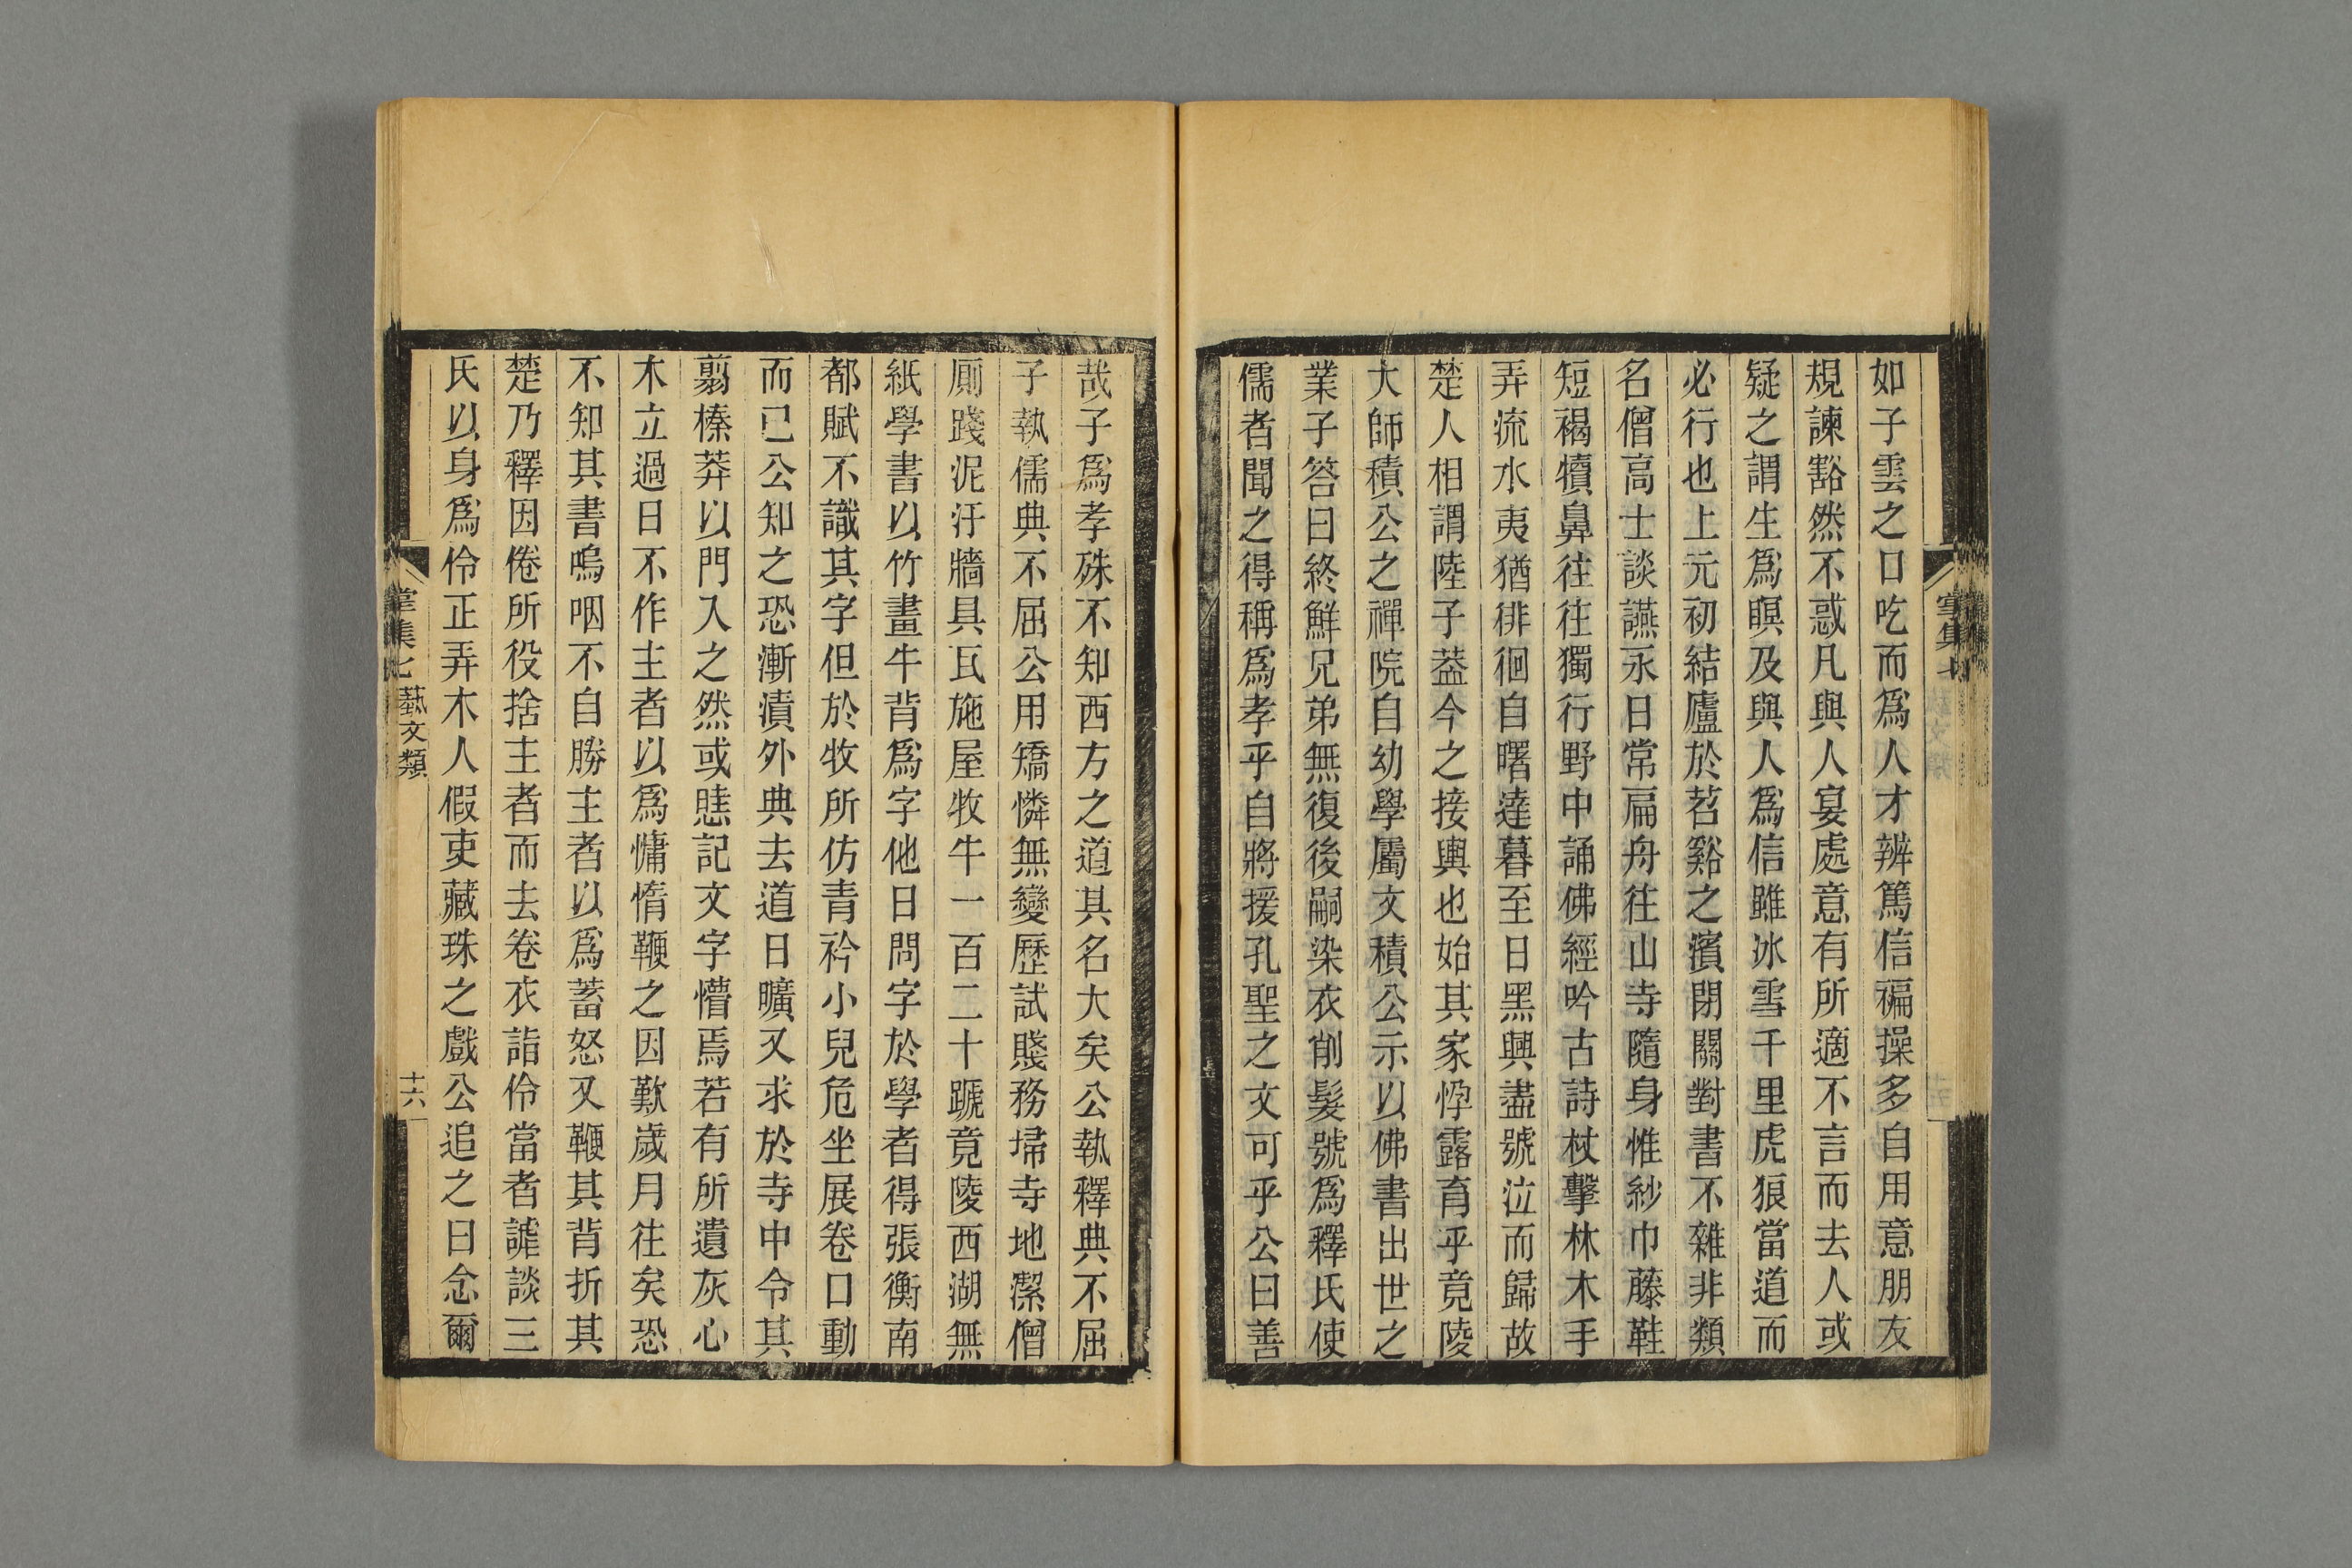 如子雲之口吃而爲人才辨篤信褊操多自用意朋友
規諫豁然不惑凡與人宴處意有所適不言而去人或
疑之謂生爲瞋及與人爲信雖冰雪千里虎狼當道而
必行也上元初結廬於苕谿之濱閉關對書不雜非類
名僧高士談讌永日常扁舟往山寺隨身惟紗巾藤鞋
短褐犢鼻往往獨行野中誦佛經吟古詩杖擊林木手
弄流水夷猶徘徊自曙達暮至日黑興盡號泣而歸故
楚人相謂陸子葢今之接輿也始其家惸露育乎竟陵
大師積公之禪院自幼學屬文積公示以佛書出世之
業子答曰終鮮兄弟無復後嗣染衣削髮號爲釋氏使
儒者聞之得稱爲孝乎自將援孔聖之文可乎公曰善
哉子爲孝殊不知西方之道其名大矣公執釋典不屈
子執儒典不屈公用矯憐無變歷試賤務埽寺地潔僧
厠踐泥汙牆具瓦施屋牧牛一百二十蹏竟陵西湖無
紙學書以竹畫牛背爲字他日問字於學者得張衡南
都賦不識其字但於牧所仿青衿小兒危坐展卷口動
而已公知之恐漸漬外典去道日曠又求於寺中令其
翦榛莽以門入之然或瞣記文字懵焉若有所遺灰心
木立過日不作主者以爲慵惰鞭之因歎歲月往矣恐
不知其書嗚咽不自勝主者以爲蓄怒又鞭其背折其
楚乃釋因倦所役捨主者而去卷衣詣伶當者謔談三
氏以身爲伶正弄木人假吏藏珠之戲公追之曰念爾
集七 藝文類 十六